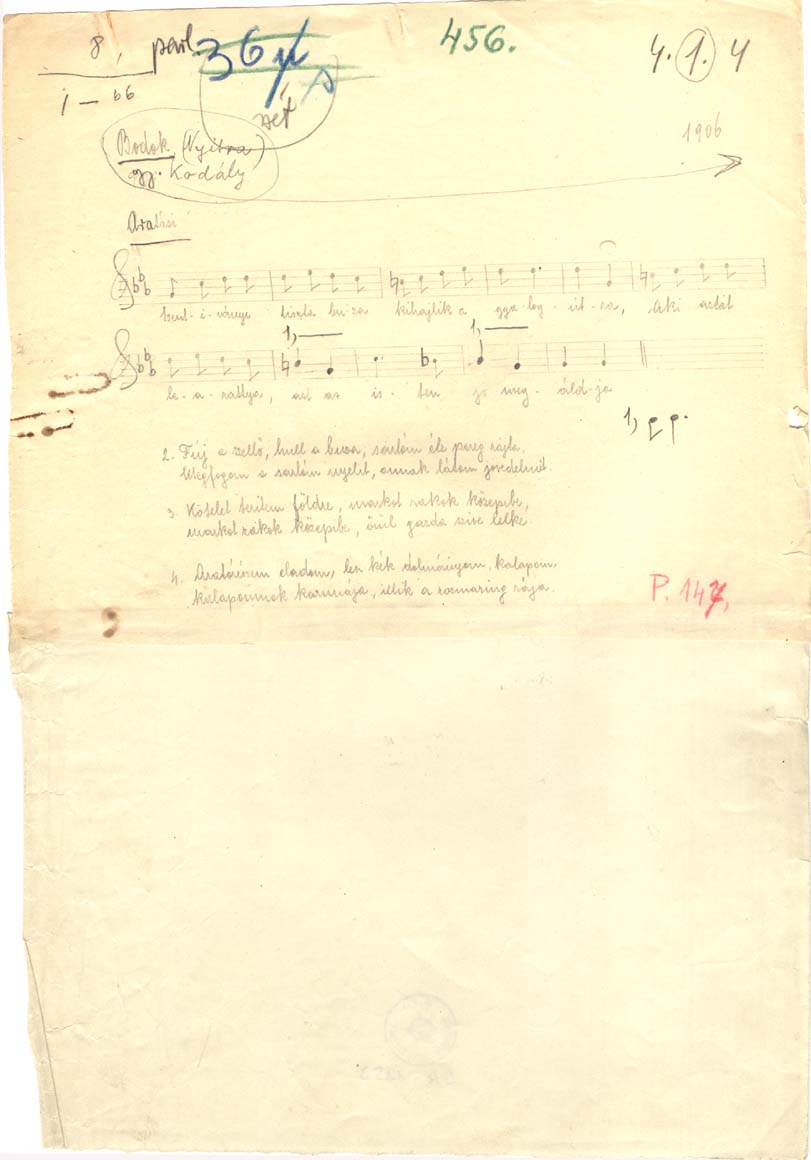 8, parl.
36
456.
4. 1. 4
1 — b6
Bodok (Nyitra)
gy. Kodály
1906
Aratási
Szent-i-ványi tiszta bu-za kihajlik a gya-log-út-ra, Aki aztat
le-a-rattya, azt az is-ten jo meg-áld-ja
1,
1,
1,
2. Fúj a szellő, hull a buza, sarlóm éle pereg rajta.
Megfogom a sarlóm nyelit, annak látom jövedelmit.
3. Kötelet terítem földre, markot rakok közepibe,
markot rakok közepibe, örül gazda szive lelke.
4. Aratórészem eladom, lesz kék dolmányom, kalapom,
kalapomnak karimája, illik a rozmaring rája.
P. 147,